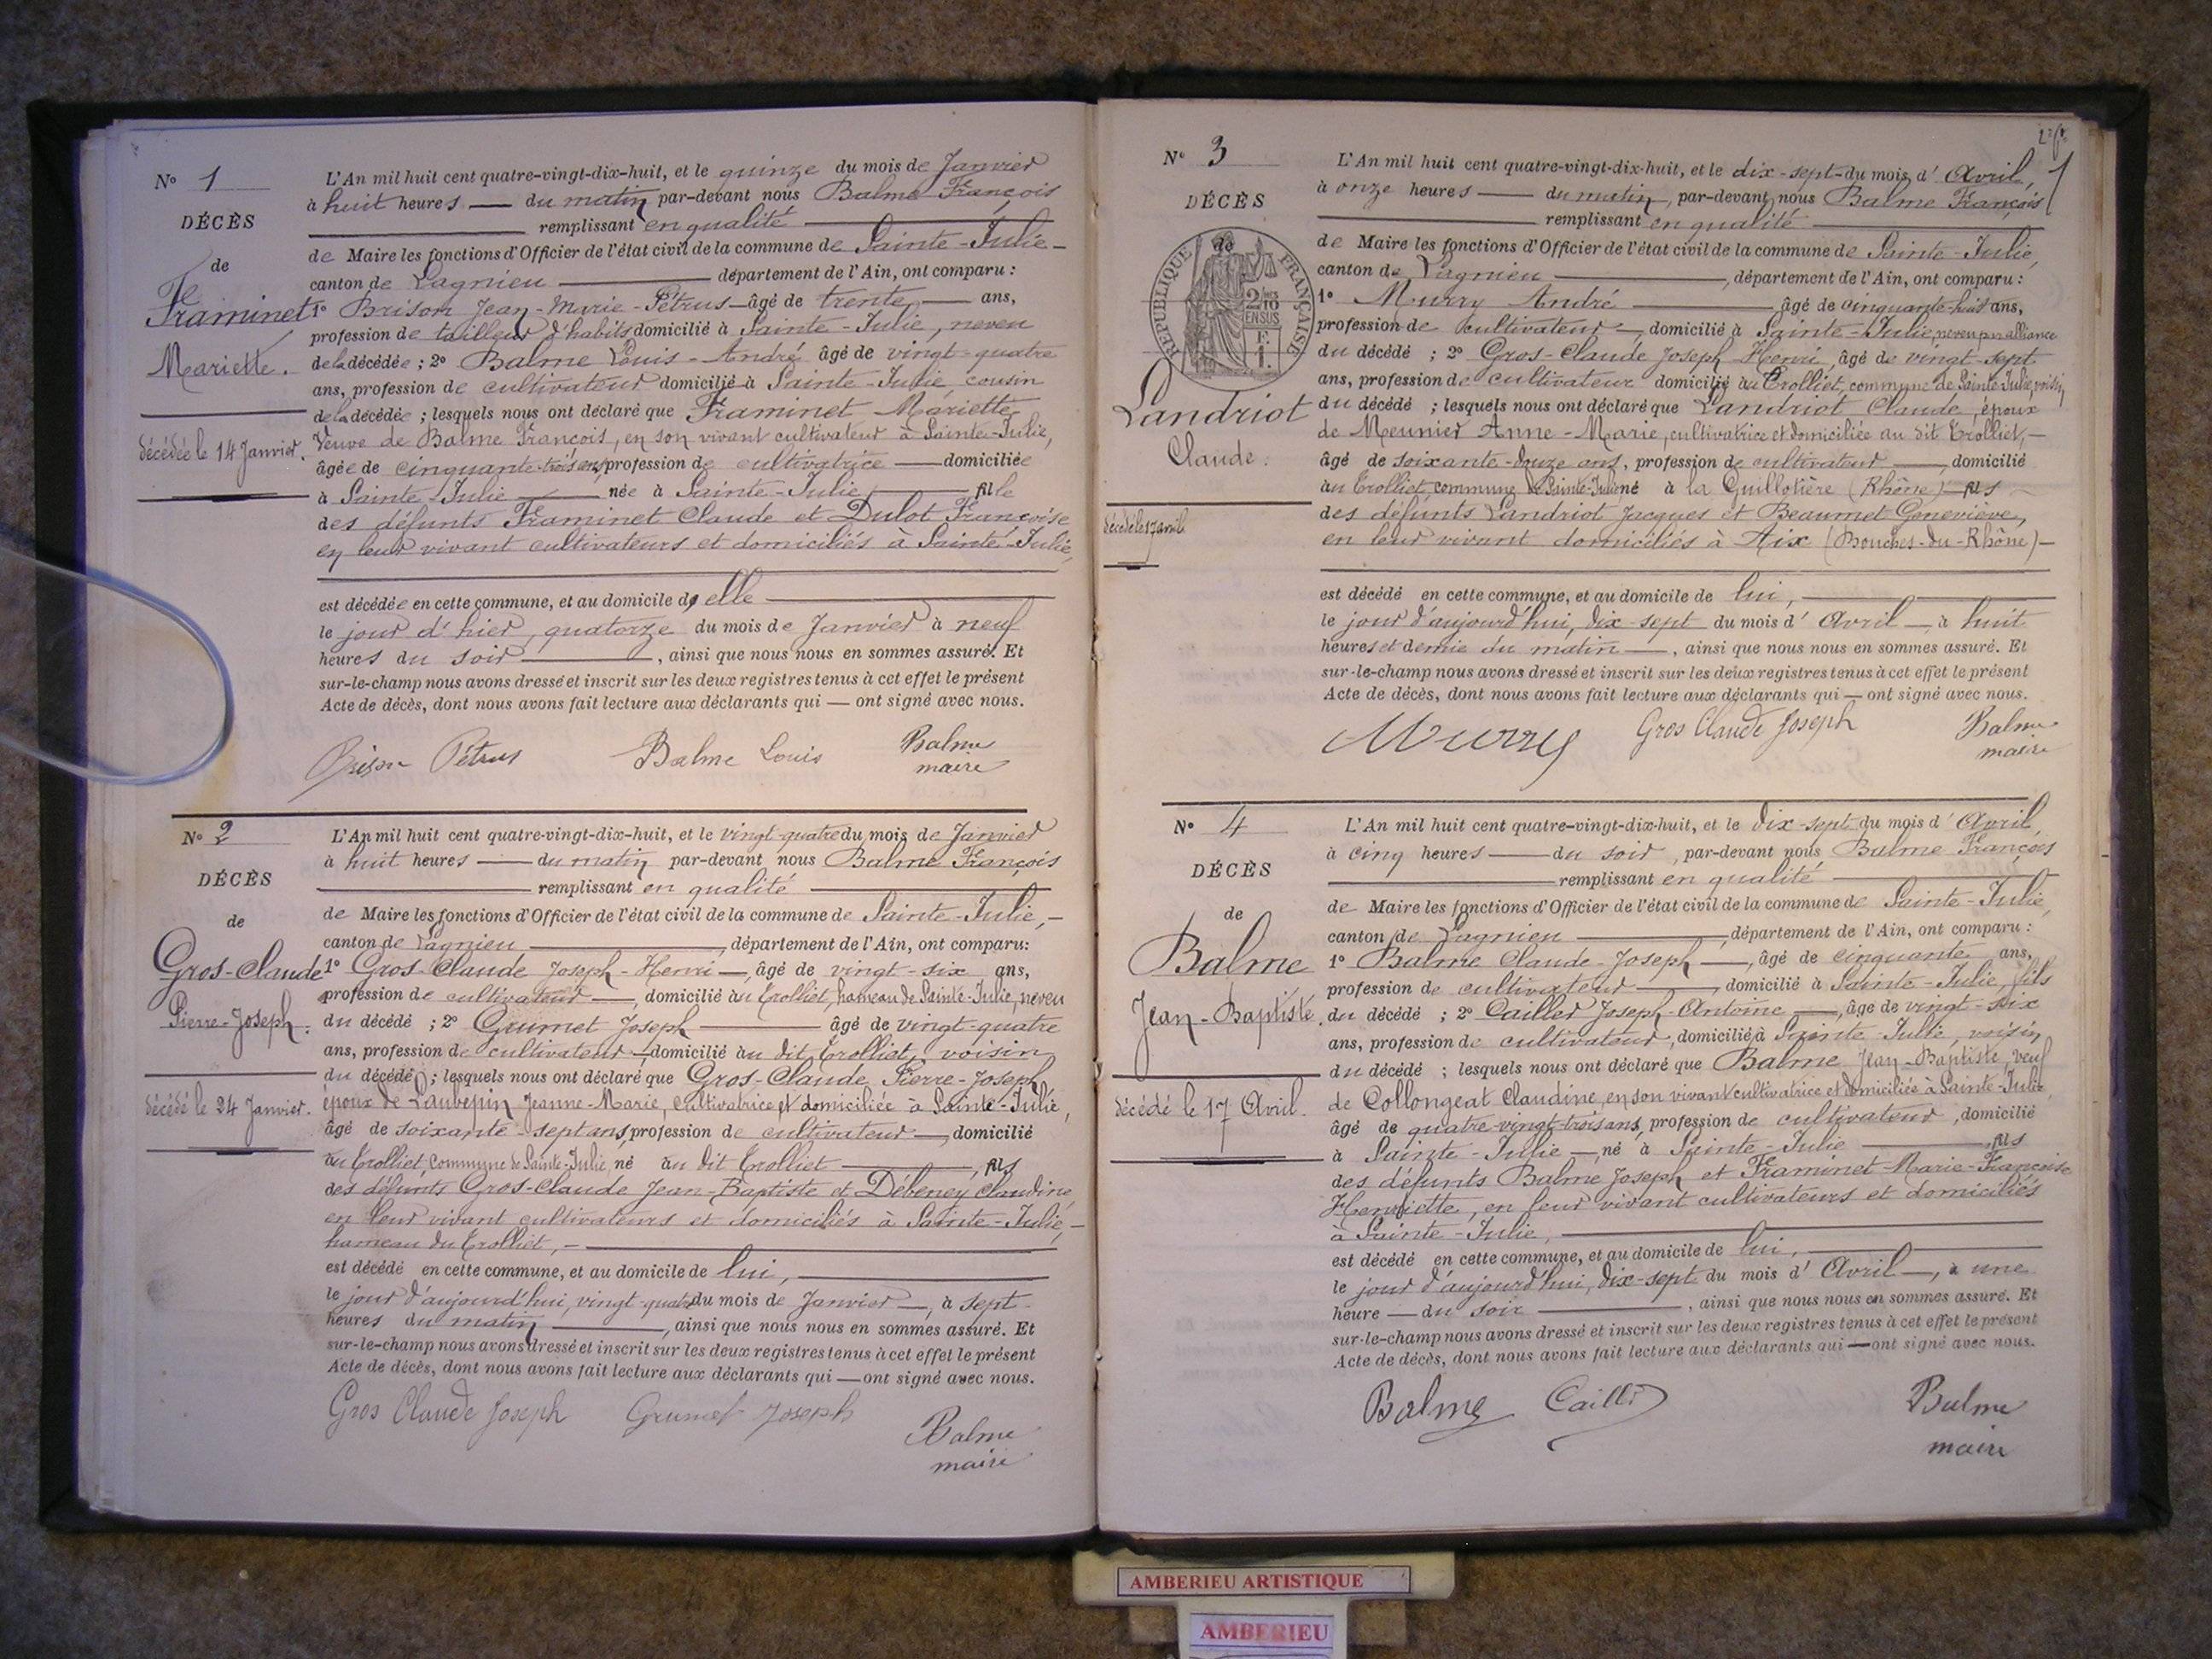 N° 1
DÉCÈS
de
Framinet
Mariette.
décédée le 14 Janvier.
L'An mil huit cent quatre-vingt-dix-huit, et le quinze du mois de Janvier
à huit heures — du matin par-devant nous Balme François
remplissant en qualité
de Maire les fonctions d'Officier de l'état civil de la commune de Sainte-Julie-
canton de Lagnieu — département de l'Ain, ont comparu :
1° Brison Jean-Marie-Pétrus — âgé de trente — ans,
profession de tailleur d'habits domicilié à Sainte-Julie, neveu
de la décédée ; 2° Balme Louis-André âgé de vingt-quatre
ans, profession de cultivateur domicilié à Sainte-Julie cousin
de la décédée ; lesquels nous ont déclaré que Framinet Mariette
Veuve de Balme François, en son vivant cultivateur à Sainte-Julie,
âgée de cinquante-trois ans, profession de cultivatrice — domiciliée
à Sainte-Julie — née à Sainte-Julie — fille
des défunts Framinet Claude et Dulot Françoise
en leur vivant cultivateurs et domiciliés à Sainte-Julie,
est décédée en cette commune, et au domicile d'elle
le jour d'hier, quatorze du mois de Janvier à neuf
heures du soir —, ainsi que nous nous en sommes assuré. Et
sur-le-champ nous avons dressé et inscrit sur les deux registres tenus à cet effet le présent
Acte de décès, dont nous avons fait lecture aux déclarants qui — ont signé avec nous.
Brison Pétrus Balme Louis Balme
maire
N° 2
DÉCÈS
de
Gros-Claude
Pierre-Joseph.
décédé le 24 Janvier.
L'An mil huit cent quatre-vingt-dix-huit, et le vingt-quatre du mois de Janvier
à huit heures — du matin par-devant nous Balme François
remplissant en qualité
de Maire les fonctions d'Officier de l'état civil de la commune de Sainte-Julie,-
canton de Lagnieu —, département de l'Ain, ont comparu:
1° Gros-Claude Joseph-Henri —, âgé de vingt-six ans,
profession de cultivateur —, domicilié au Trolliet, hameau de Sainte-Julie, neveu
du décédé ; 2° Grumet Joseph — âgé de vingt-quatre
ans, profession de cultivateur — domicilié au dit Trolliet, voisin
du décédé ; lesquels nous ont déclaré que Gros-Claude Pierre-Joseph
époux de Laubepin Jeanne-Marie, cultivatrice et domiciliée à Sainte-Julie,
âgé de soixante-sept ans, profession de cultivateur —, domicilié
au Trolliet, commune de Sainte-Julie, né au dit Trolliet —, fils
des défunts Gros-Claude Jean-Baptiste et Débeney Claudine,
en leur vivant cultivateurs et domiciliés à Sainte-Julie,-
hameau du Trolliet, —
est décédé en cette commune, et au domicile de lui,
le jour d'aujourd'hui, vingt-quatre du mois de Janvier —, à sept-
heures du matin —, ainsi que nous nous en sommes assuré. Et
sur-le-champ nous avons dressé et inscrit sur les deux registres tenus à cet effet le présent
Acte de décès, dont nous avons fait lecture aux déclarants qui — ont signé avec nous.
Gros Claude Joseph Grumet Joseph
Balme
maire
N° 3
DÉCÈS
de
RÉPUBLIQUE FRANÇAISE
2/10
EN SUS
Landriot
Claude.
décédé le 17 avril
L'An mil huit cent quatre-vingt-dix-huit, et le dix-sept-du mois d'Avril,
à onze heures — du matin, par-devant nous Balme François
remplissant en qualité
de Maire les fonctions d'Officier de l'état civil de la commune de Sainte-Julie,
canton de Lagnieu —, département de l'Ain, ont comparu :
1° Murry André — âgé de cinquante-huit ans,
profession de cultivateur —, domicilié à Sainte-Julie, neveu par alliance
du décédé ; 2° Gros-Claude Joseph-Henri, âgé de vingt-sept
ans, profession de cultivateur domicilié au Trolliet, commune de Sainte-Julie, voisin
du décédé ; lesquels nous ont déclaré que Landriot Claude, époux
de Meunier Anne-Marie, cultivatrice et domiciliée au dit Trolliet,—
âgé de soixante-douze ans, profession de cultivateur —, domicilié
au Trolliet, commune de Sainte-Julie né à la Guillotière (Rhône) — fils
des défunts Landriot Jacques et Beaumet Geneviève,
en leur vivant domiciliés à Aix (Bouches-du-Rhône)—
est décédé en cette commune, et au domicile de lui,
le jour d'aujourd'hui, dix-sept du mois d'Avril —, à huit
heures et demie du matin —, ainsi que nous nous en sommes assuré. Et
sur-le-champ nous avons dressé et inscrit sur les deux registres tenus à cet effet le présent
Acte de décès, dont nous avons fait lecture aux déclarants qui — ont signé avec nous.
Murry Gros Claude Joseph Balme
maire
N° 4
DÉCÈS
de
Balme
Jean-Baptiste.
décédé le 17 Avril.
L'An mil huit cent quatre-vingt-dix-huit, et le dix-sept du mois d'Avril,
à cinq heures — du soir, par-devant nous Balme François
remplissant en qualité
de Maire les fonctions d'Officier de l'état civil de la commune de Sainte-Julie,
canton de Lagnieu —, département de l'Ain, ont comparu :
1° Balme Claude-Joseph —, âgé de cinquante ans,
profession de cultivateur —, domicilié à Sainte-Julie, fils
du décédé ; 2° Cailler Joseph-Antoine —, âgé de vingt-six
ans, profession de cultivateur, domicilié à Sainte-Julie, voisin
du décédé ; lesquels nous ont déclaré que Balme Jean-Baptiste, veuf
de Collongeat Claudine, en son vivant cultivatrice et domiciliée à Sainte-Julie,
âgé de quatre-vingt-trois ans, profession de cultivateur, domicilié
à Sainte-Julie — né à Sainte-Julie —, fils
des défunts Balme Joseph et Framinet Marie-Françoise
Henriette, en leur vivant cultivateurs et domiciliés
à Sainte-Julie,
est décédé en cette commune, et au domicile de lui,
le jour d'aujourd'hui, dix-sept du mois d'Avril —, à une
heure — du soir —, ainsi que nous nous en sommes assuré. Et
sur-le-champ nous avons dressé et inscrit sur les deux registres tenus à cet effet le présent
Acte de décès, dont nous avons fait lecture aux déclarants qui — ont signé avec nous.
Balme Cailler Balme
maire
AMBERIEU ARTISTIQUE
AMBERIEU